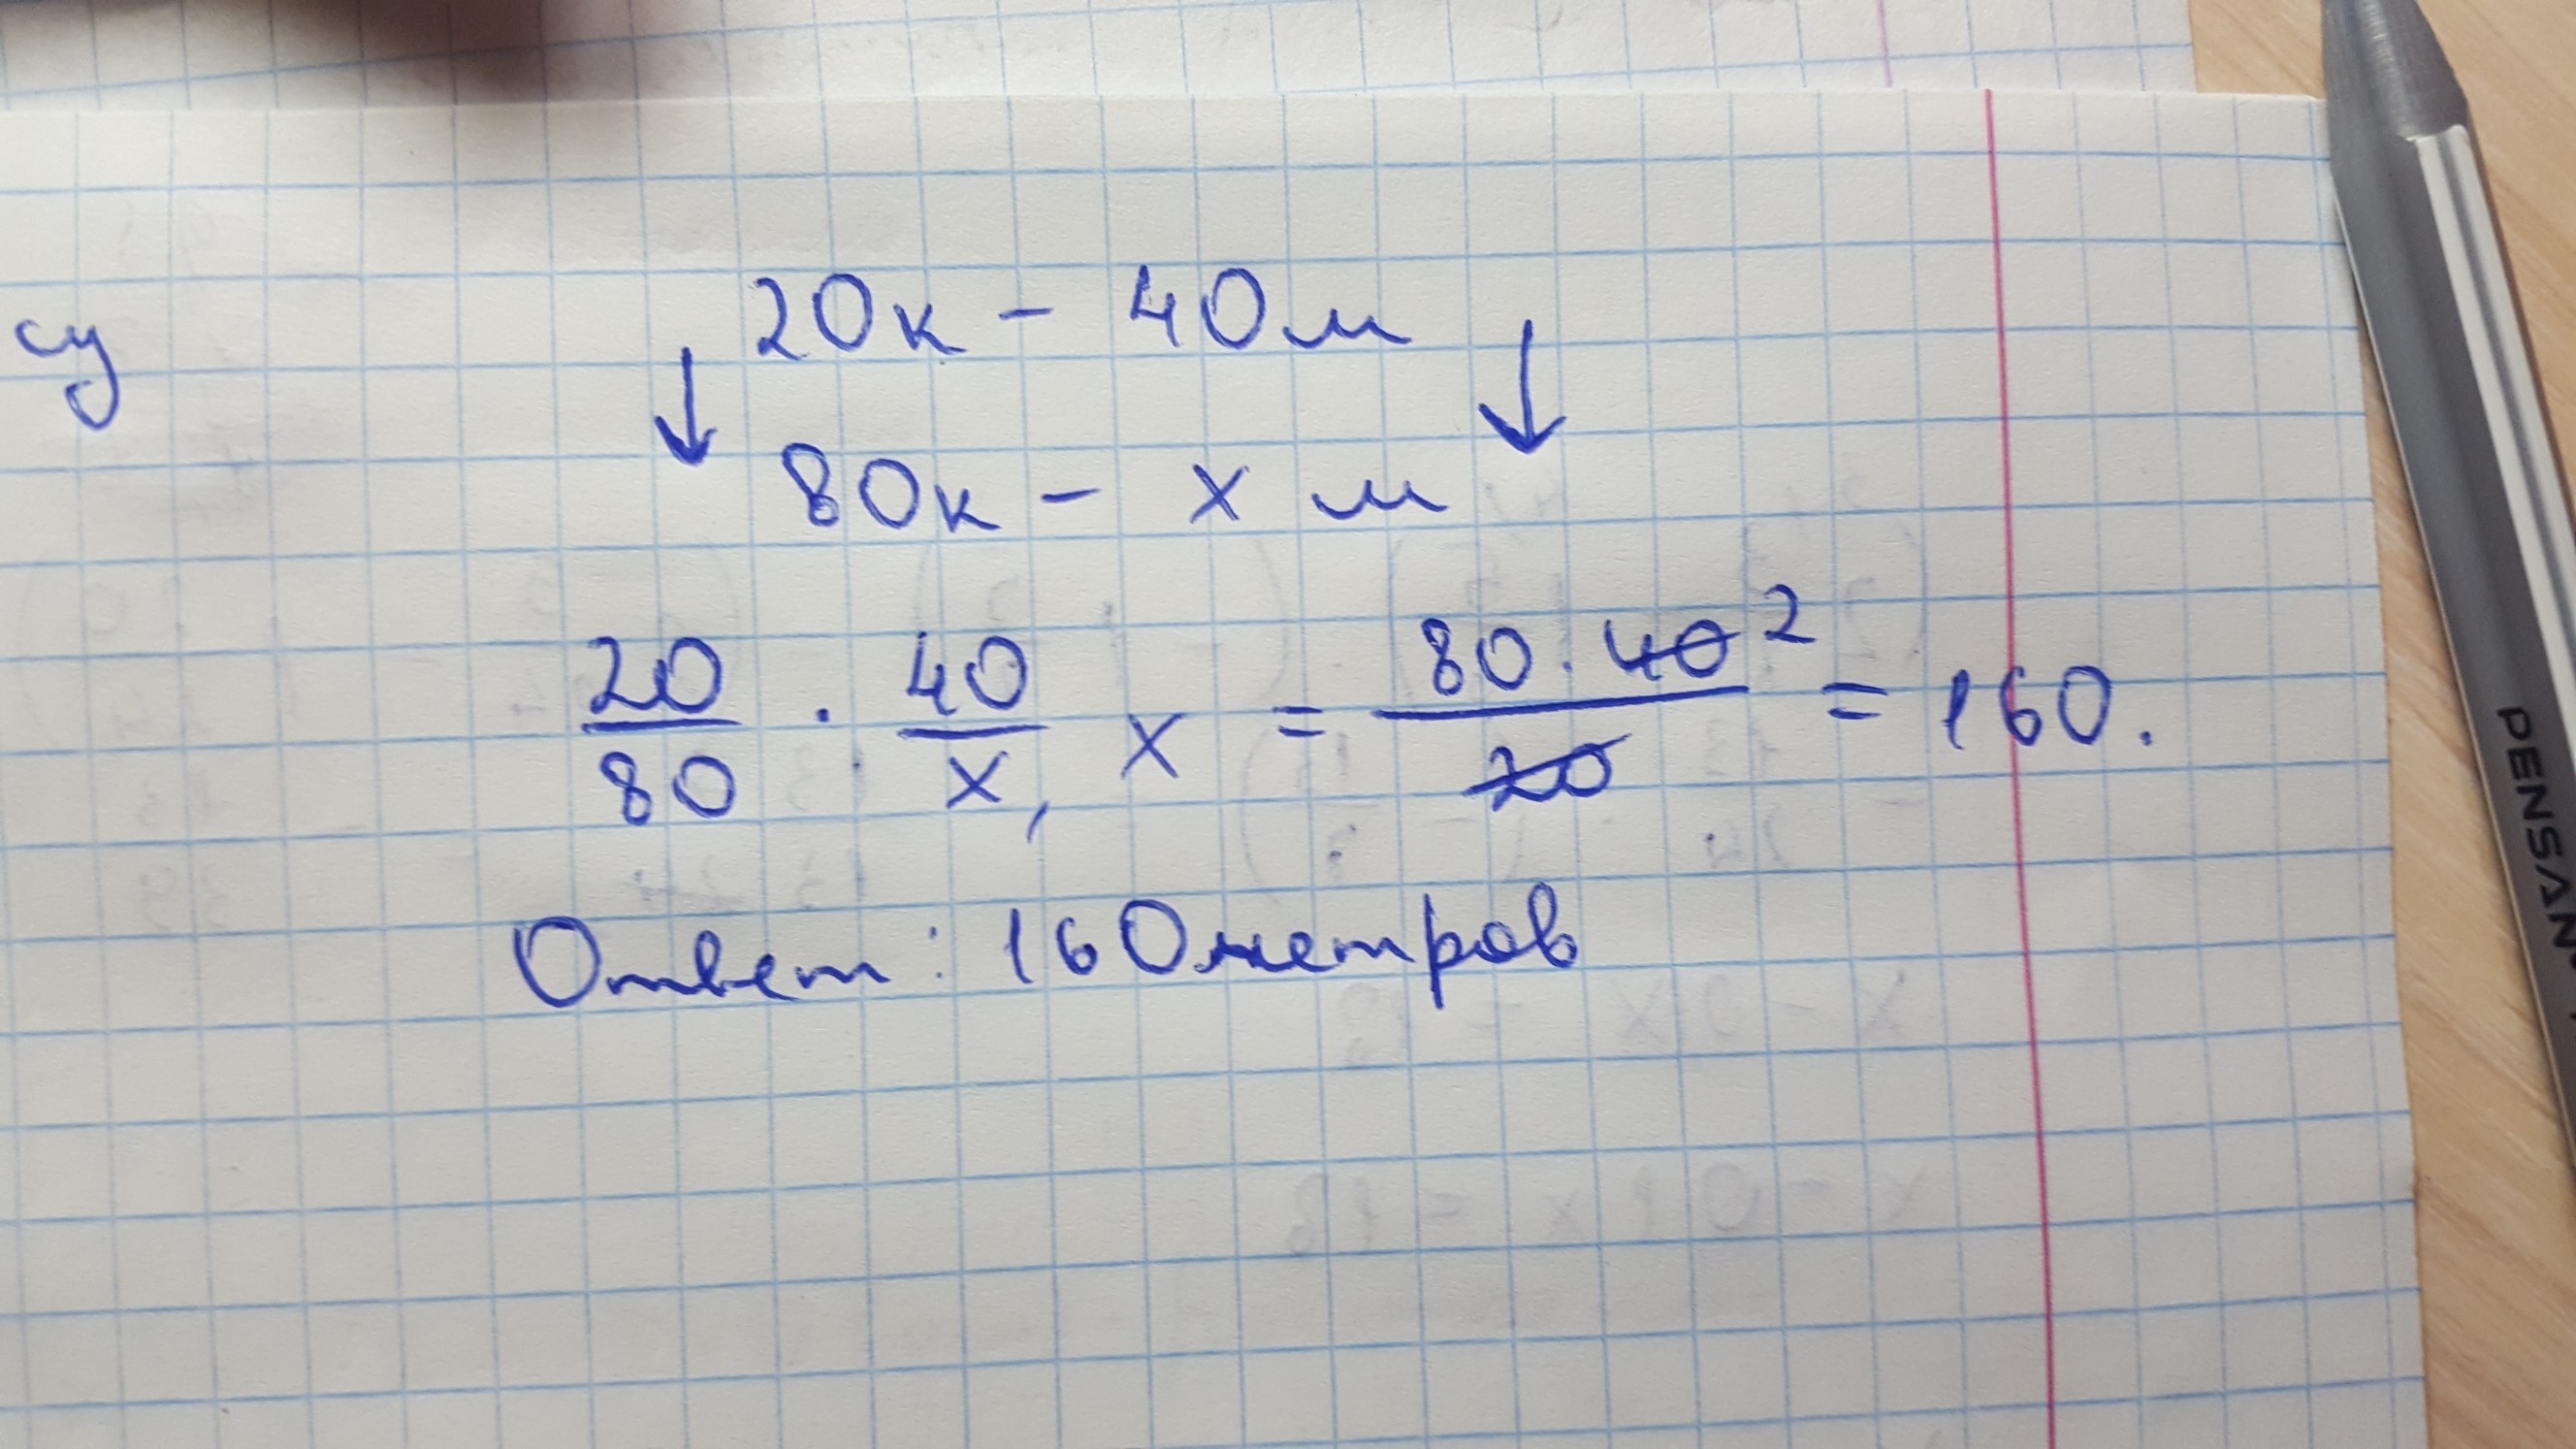 су
20к - 40м
80к - х м
20/80 · 40/х, х = 80·40 2/20 = 160.
Ответ: 160метров
PENSAN